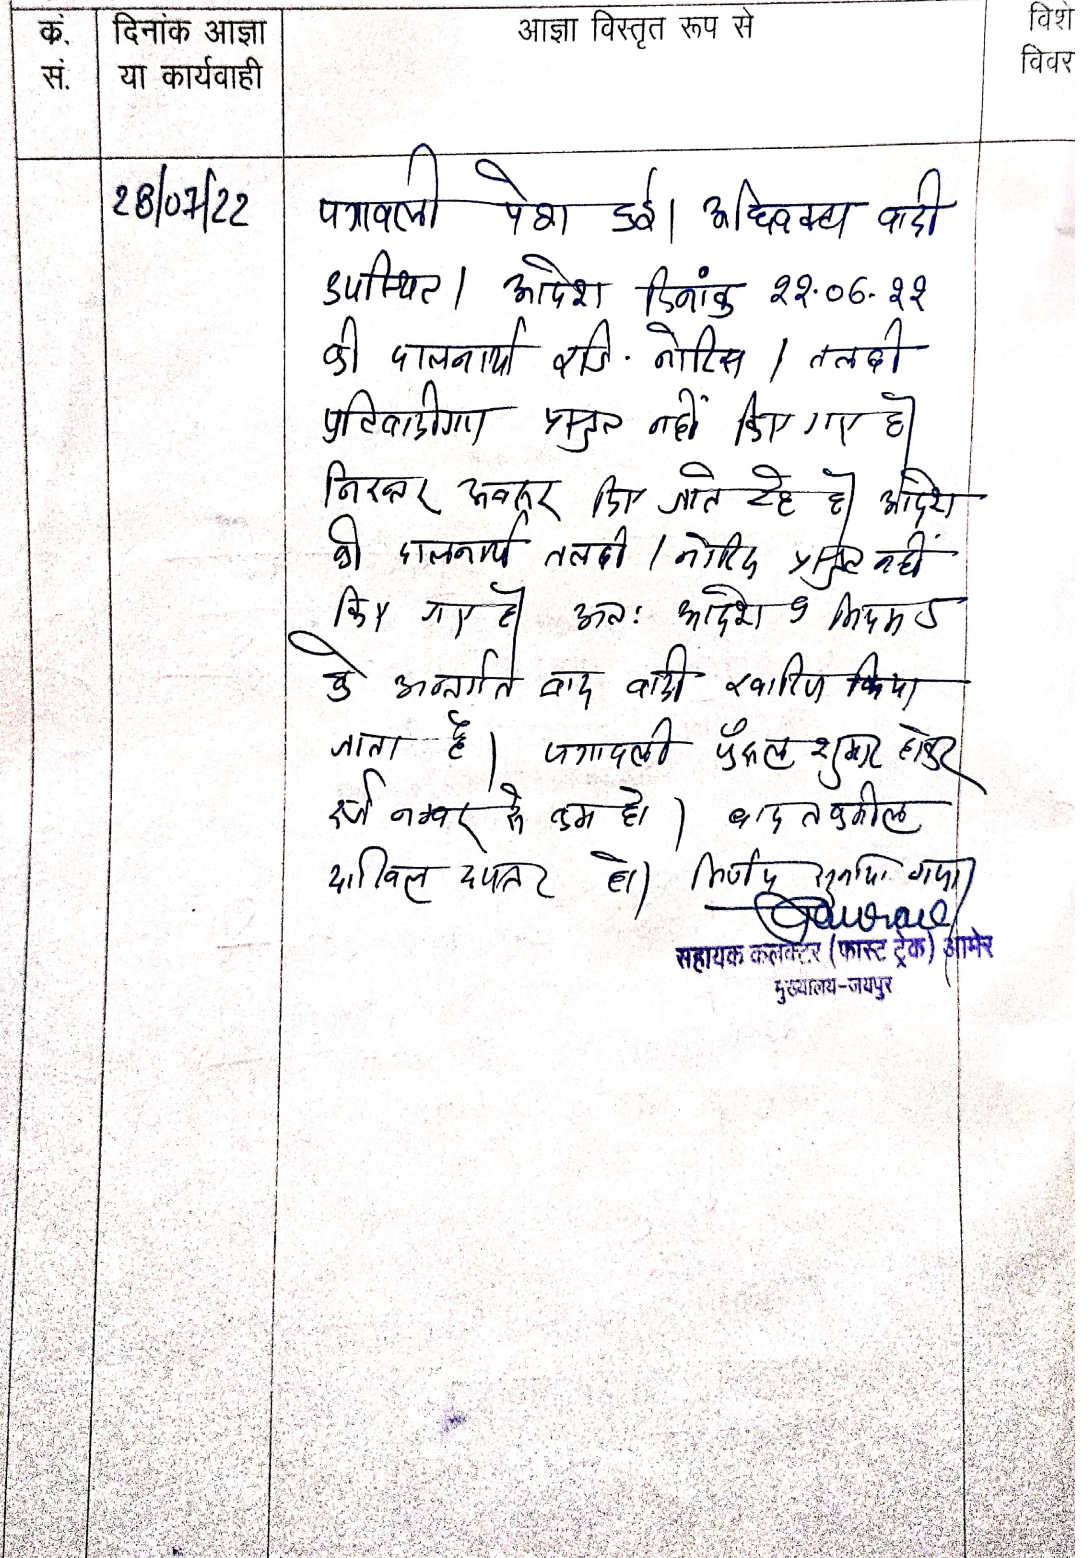 क्रं. सं.
दिनांक आज्ञा या कार्यवाही
आज्ञा विस्तृत रूप से
विशे
विवर
28/07/22
पत्रावली पेश हुई। अधिवक्ता वादी
उपस्थित। आदेश दिनांक 22.06.22
की पालनार्थ रजि. नोटिस / तलबी
प्रतिवादीगण प्रस्तुत नहीं किए गए है।
निरन्तर अवसर दिए जाते रहे है। आदेश
की पालनार्थ तलबी / नोटिस प्रस्तुत नहीं
किए गए है। अतः आदेश 9 नियम
के अन्तर्गत वाद वादी खारिज किया
जाता है। पत्रावली फैसल शुमार होकर
दर्ज नम्बर से कम हो। बाद तकमील
दाखिल दफ्तर हो। निर्णय सुनाया गया।
सहायक कलक्टर (फास्ट ट्रेक) आमेर
मुख्यालय-जयपुर